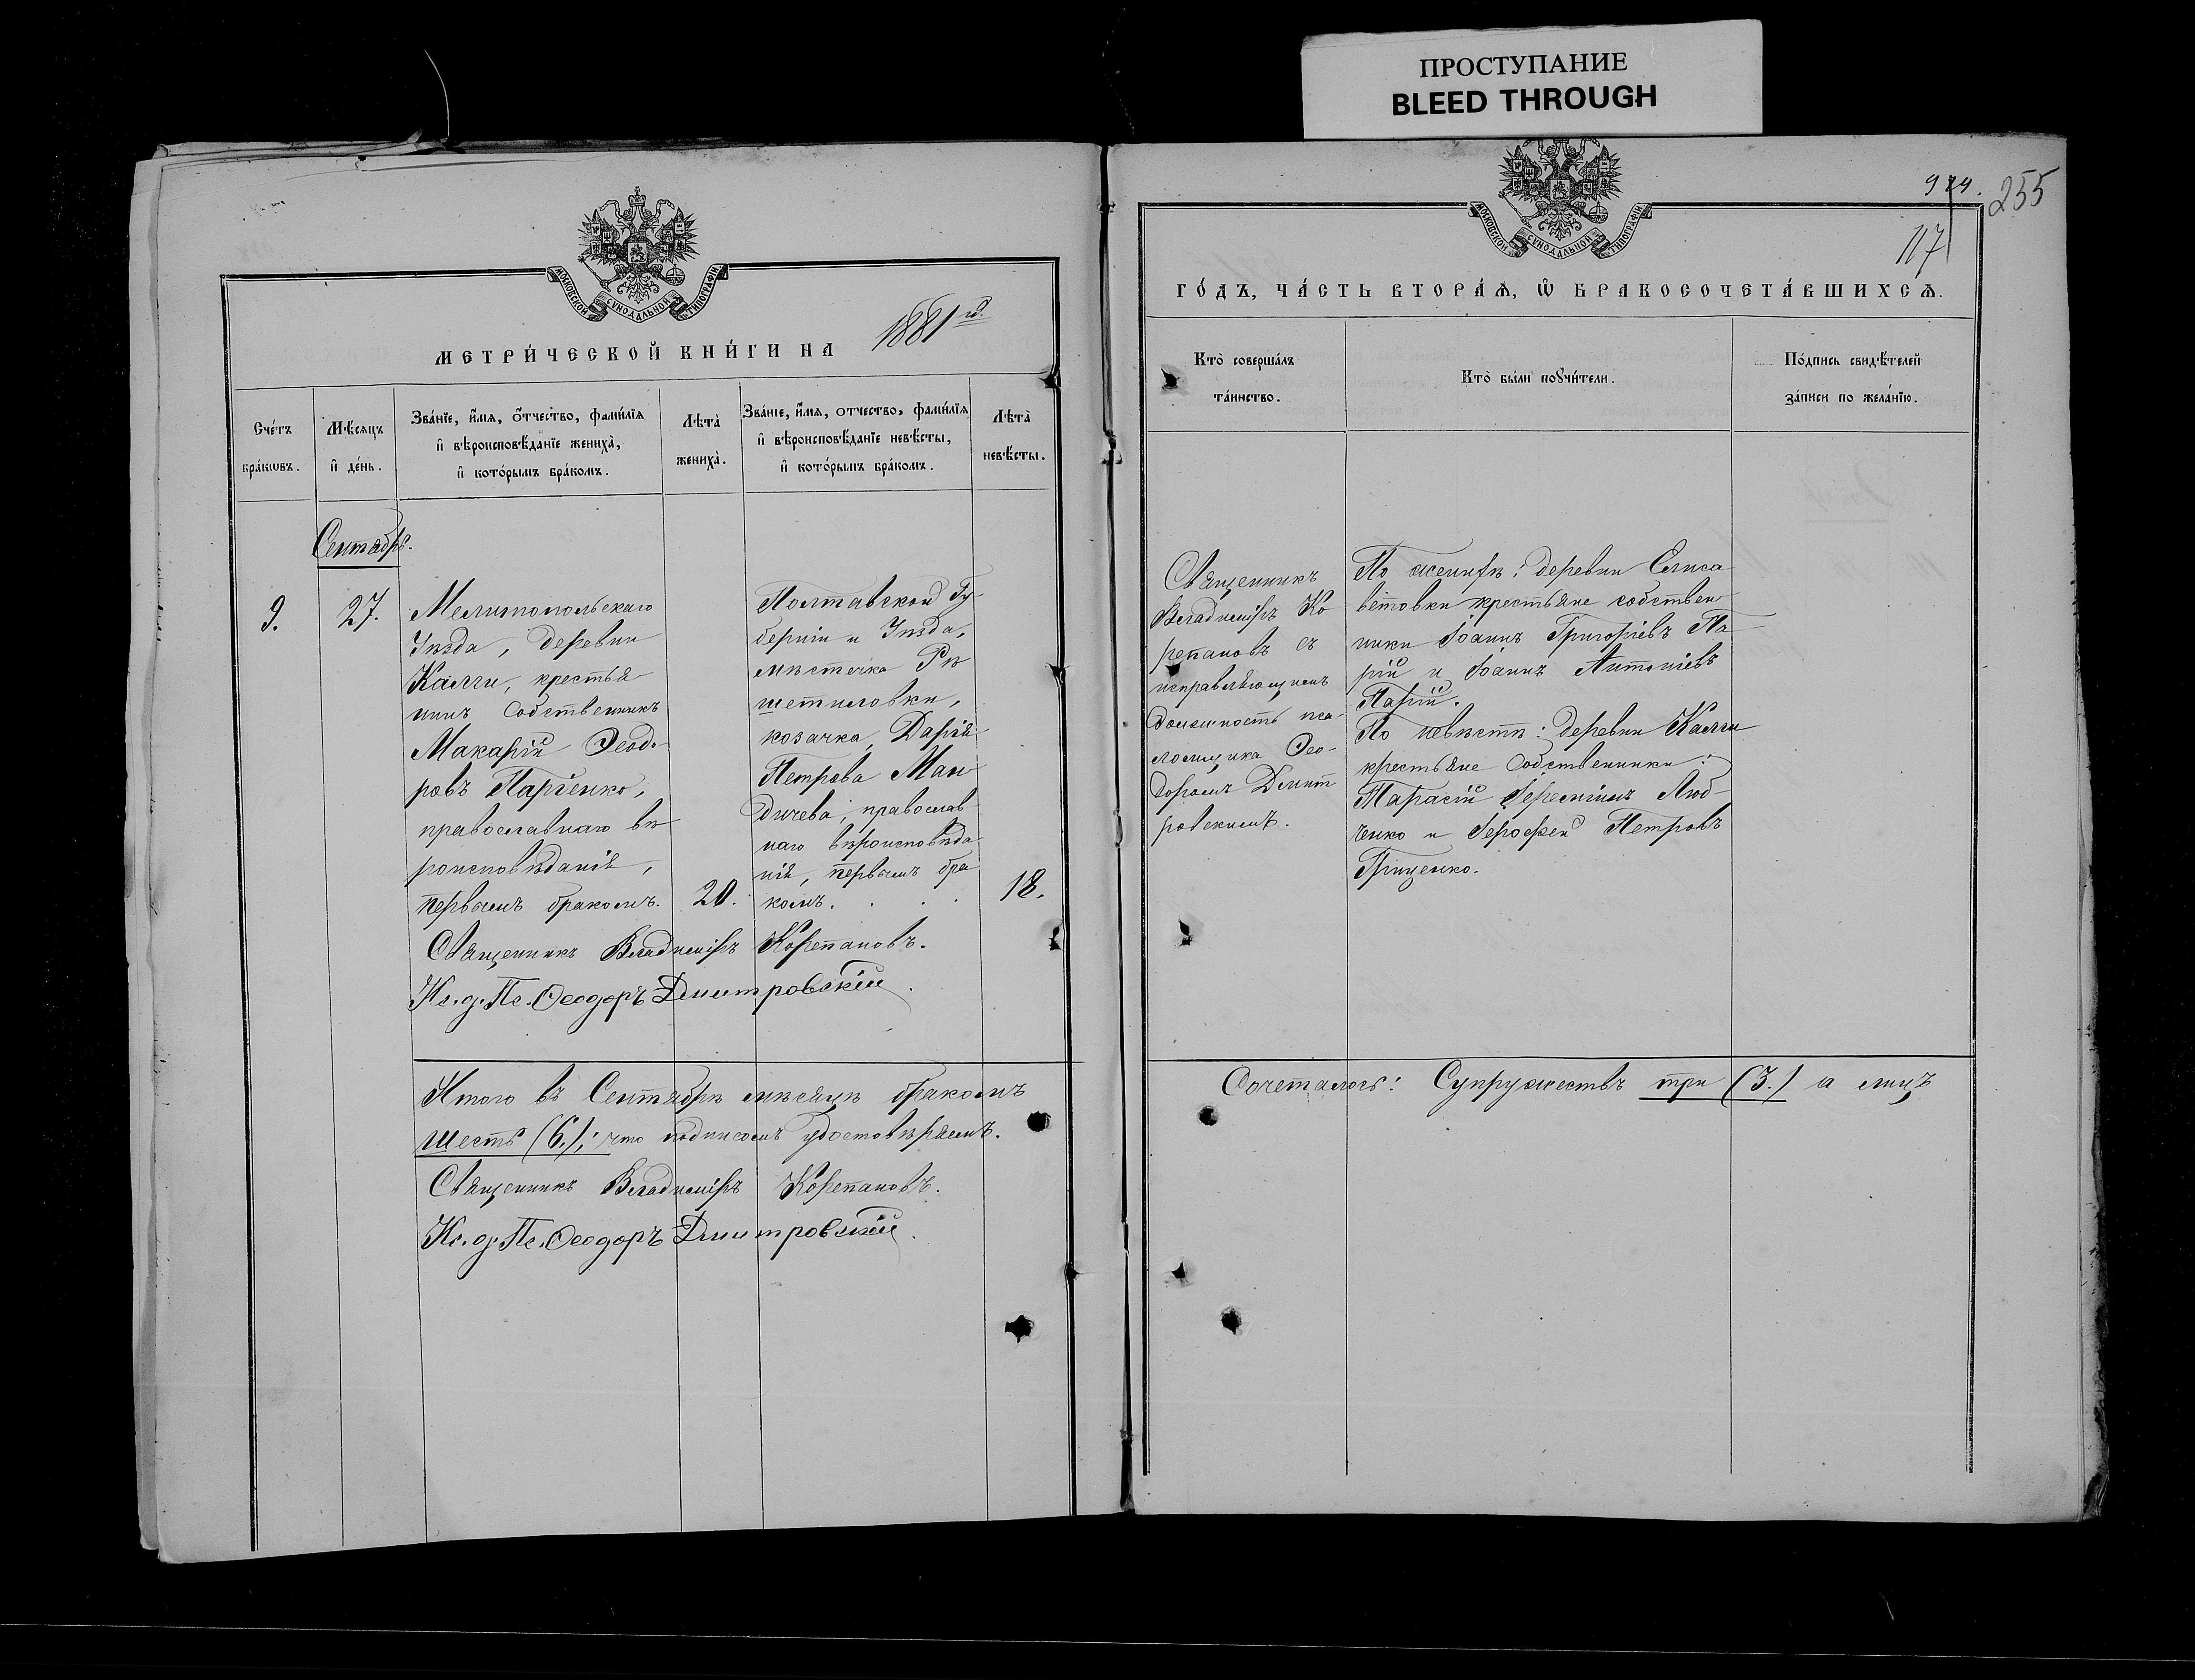 ПРОСТУПАНИЕ
BLEED THROUGH
МОСКОВСКОЙ СѴНОДАЛЬНОЙ ТИПОГРАФІИ
МЕТРИ́ЧЕСКОЙ КНИ́ГИ НА 1881 го.
Сче́тъ бра́кѡвъ.
Мѣ́сяцъ и҆ де́нь.
Зва́нїе, и҆́мя, ѻ҆́тчество, фами́лїя
и҆ вѣроисповѣ́данїе жениха̀,
и҆ кото́рымъ бра́комъ.
Лѣта̀ жениха̀.
Зва́нїе, и҆́мя, отчество, фами́лїя
и҆ вѣроисповѣ́данїе невѣ́сты,
и҆ кото́рымъ бра́комъ.
Лѣта̀ невѣ́сты.
Сентябрь.
9.
27.
Мелитопольскаго
Уѣзда, деревни
Калги, крестья
нинъ собственникъ
Макарій Ѳеодо
ровъ Паріенко,
православнаго вѣ
роисповѣданія,
первымъ бракомъ.
20.
Полтавской Гу
берніи и Уѣзда,
мѣстечка Рѣ
шетиловки,
козачка Дарія
Петрова Ман
дичева, православ
наго вѣроисповѣда
нія, первымъ бра
комъ.
18.
Священникъ Владиміръ Корепановъ.
Ис. д. Пс. Ѳеодоръ Дмитровскій.
Итого въ Сентябрѣ мѣсяцѣ бракомъ
шесть (6.); что подписомъ удостовѣряемъ.
Священникъ Владиміръ Корепановъ.
Ис. д. Пс. Ѳеодоръ Дмитровскій.
МОСКОВСКОЙ СѴНОДАЛЬНОЙ ТИПОГРАФІИ
255
117
ГО́ДЪ, ЧА́СТЬ ВТОРА́Ѧ, Ѽ БРАКОСОЧЕТА́ВШИХСѦ.
Кто̀ соверша́лъ
та́инство.
Кто̀ бы́ли поꙋчи́тели.
По́дпись свидѣ́телей
за́писи по жела́нїю.
Священникъ
Владиміръ Ко
репановъ съ
исправляющимъ
должность пса
ломщика Ѳео
доромъ Дмит
ровскимъ.
По женихѣ: деревни Елиса
ветовки крестьяне собствен
ники Іоаннъ Григоріевъ Па
рій и Іоаннъ Антоніевъ
Парій.
По невѣстѣ: деревни Калги
крестьяне собственники:
Тарасій Іереміинъ Люб
ченко и Іероѳей Петровъ
Грищенко.
Сочеталось: Супружествъ три (3.) а лицъ